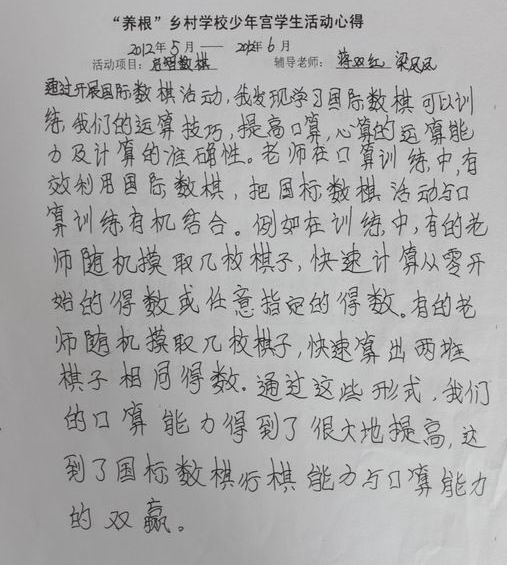 “养根”乡村学校少年宫学生活动心得
2012年5月——2012年6月
活动项目：国际数棋 辅导老师：蒋双红 梁凤凤
通过开展国际数棋活动，我发现学习国际数棋可以训
练我们的运算技巧，提高口算，心算的运算能
力及计算的准确性。老师在口算训练中，有
效利用国际数棋，把国标数棋活动与口
算训练有机结合。例如在训练中，有的老
师随机摸取几枚棋子，快速计算从零开
始的得数或任意指定的得数。有的老
师随机摸取几枚棋子，快速算出两堆
棋子相同得数。通过这些形式，我们
的口算能力得到了很大地提高，达
到了国标数棋行棋能力与口算能力
的双赢。